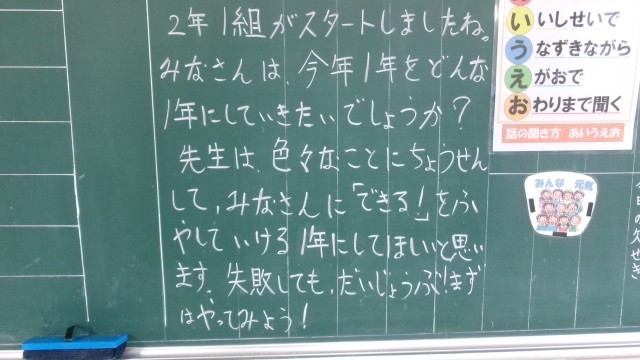 2年1組がスタートしましたね。
みなさんは、今年1年をどんな
1年にしていきたいでしょうか?
先生は、色々なことにちょうせん
して、みなさんに「できる!」をふ
やしていける1年にしてほしいと思い
ます。失敗しても、だいじょうぶ!まず
はやってみよう!
い いしせいで
う なずきながら
え がおで
お わりまで聞く
話の聞き方 あいうえお
みんな 元気